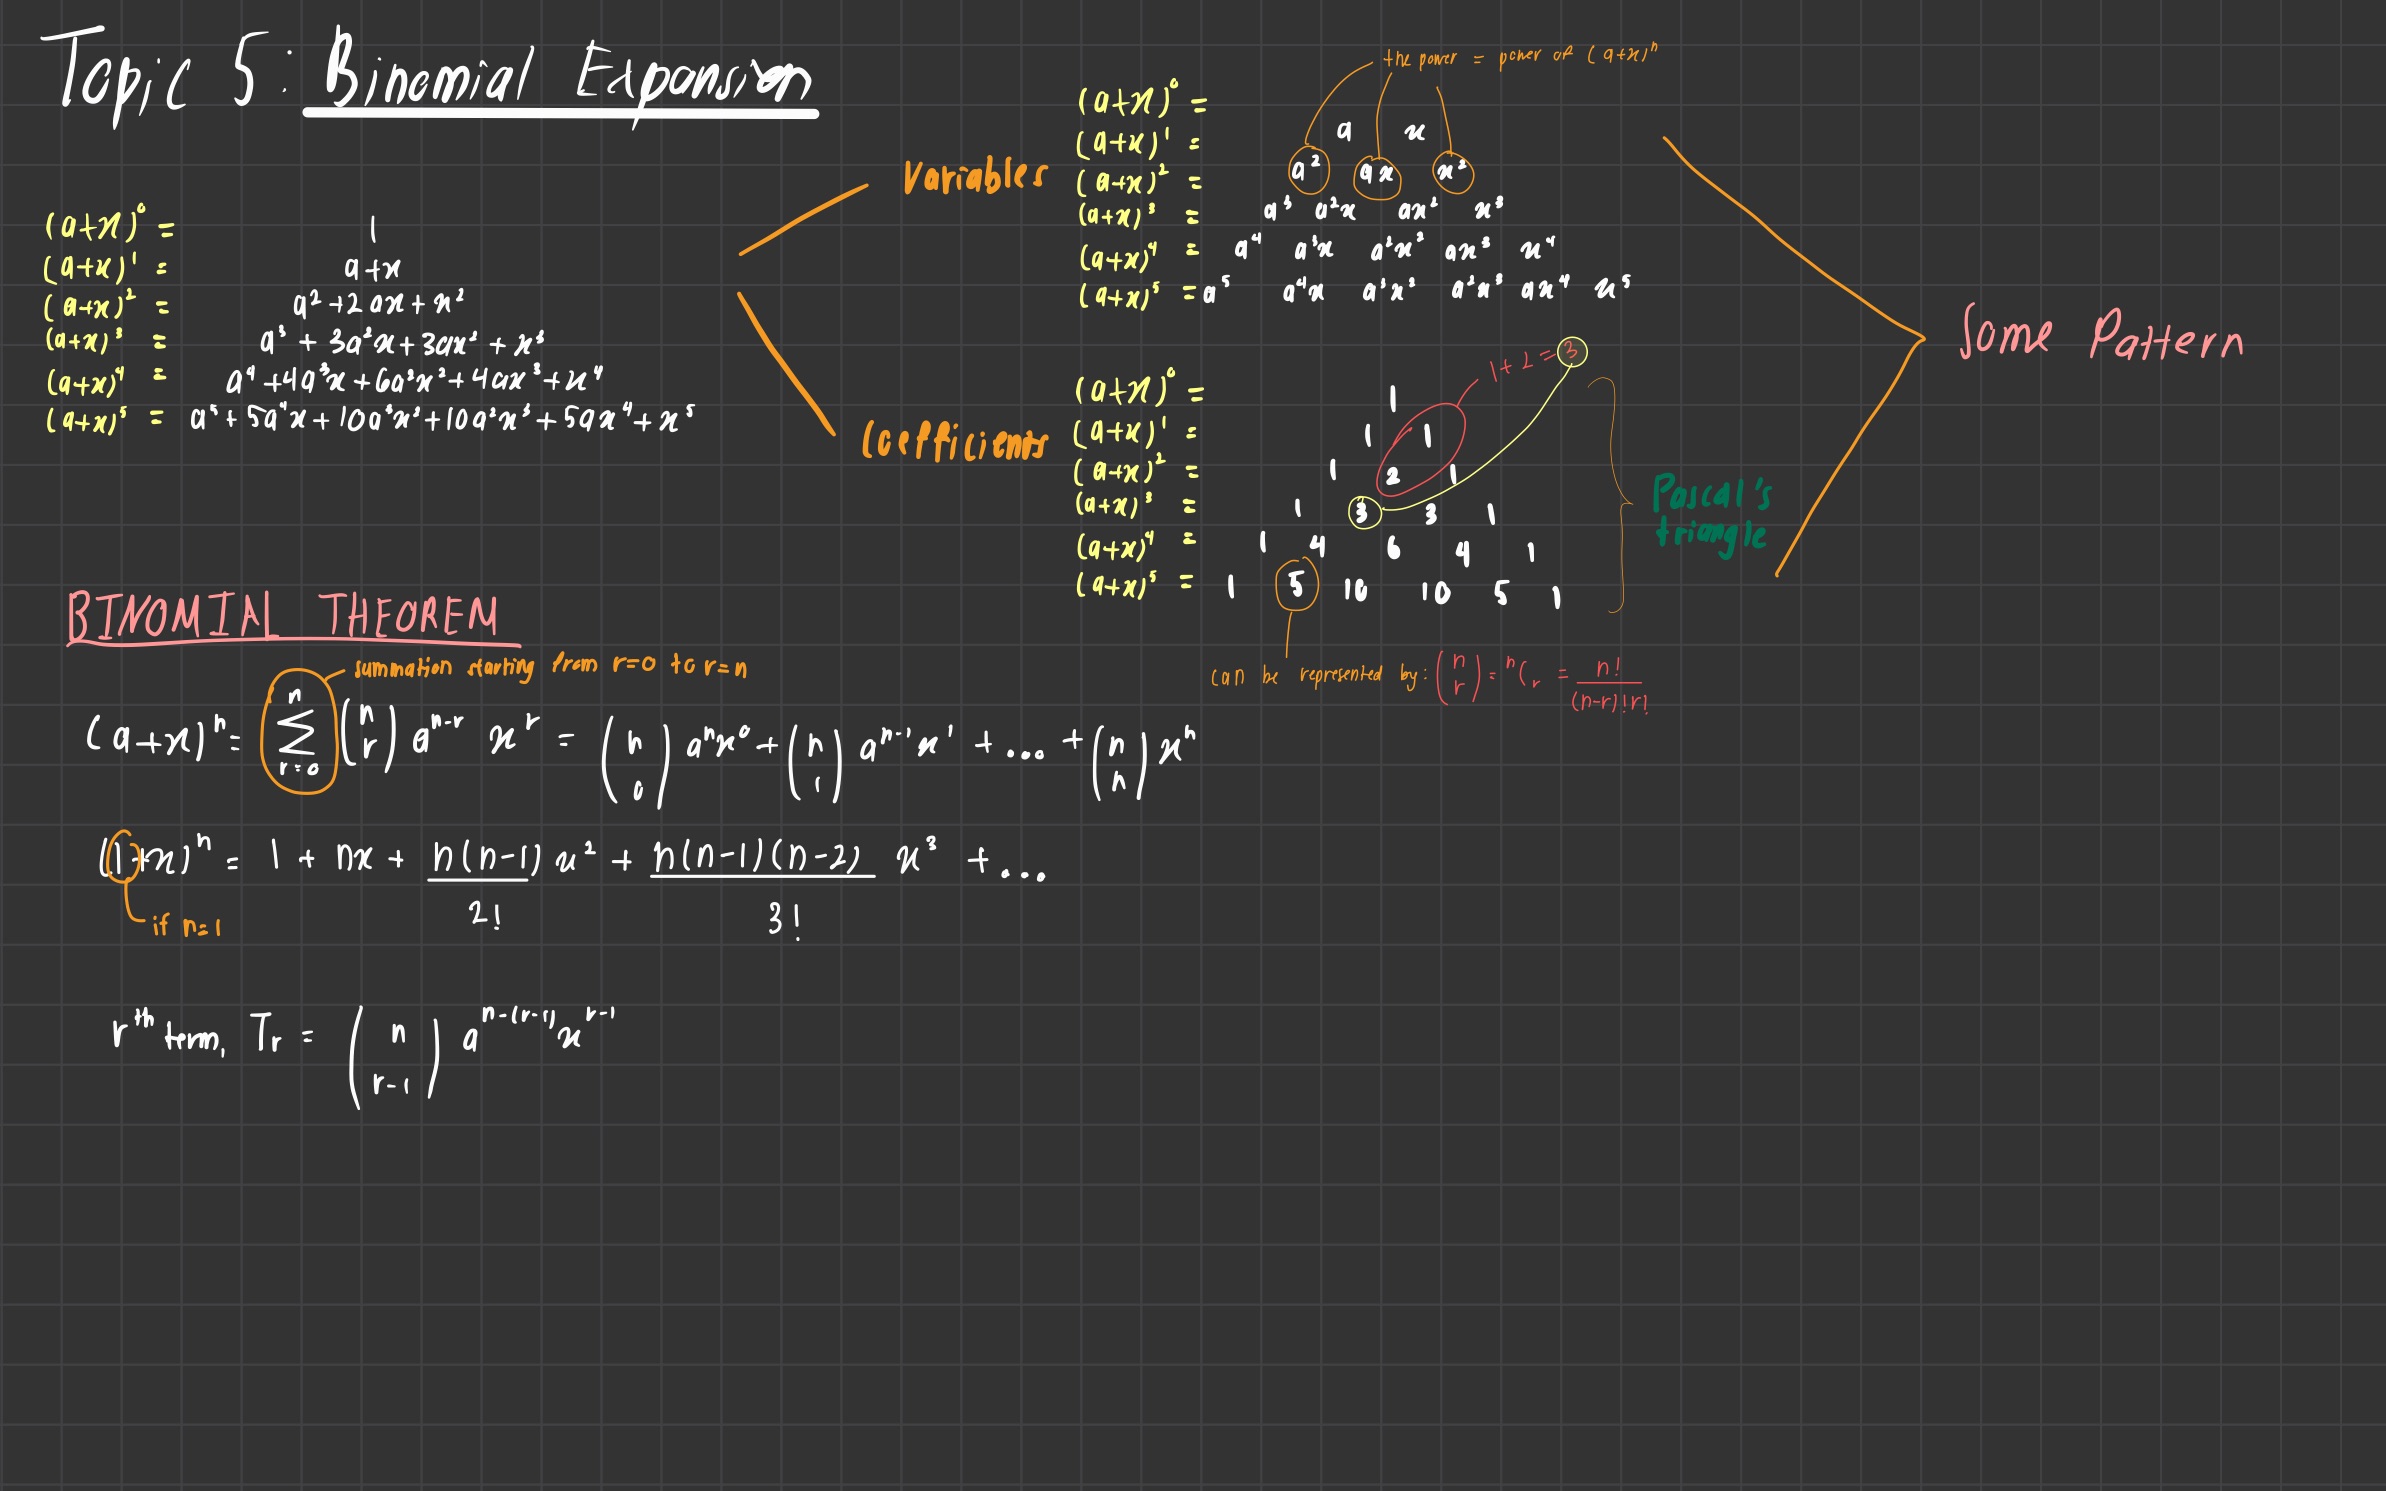 Topic 5: Binomial Expansion
(a+x)⁰ = 1
(a+x)¹ = a+x
(a+x)² = a²+2ax+x²
(a+x)³ = a³ + 3a²x+3ax² + x³
(a+x)⁴ = a⁴ +4a³x+6a²x²+4ax³+x⁴
(a+x)⁵ = a⁵ + 5a⁴x + 10a³x² + 10a²x³ + 5ax⁴ + x⁵
Variables
the power = power of (a+x)ⁿ
(a+x)⁰ =
(a+x)¹ = a x
(a+x)² = a² ax x²
(a+x)³ = a³ a²x ax² x³
(a+x)⁴ = a⁴ a³x a²x² ax³ x⁴
(a+x)⁵ = a⁵ a⁴x a³x² a²x³ ax⁴ x⁵
Coefficients
1+2=3
(a+x)⁰ = 1
(a+x)¹ = 1 1
(a+x)² = 1 2 1
(a+x)³ = 1 3 3 1
(a+x)⁴ = 1 4 6 4 1
(a+x)⁵ = 1 5 10 10 5 1
can be represented by: (n r) = ⁿCᵣ = n!/(n-r)!r!
Pascal's
triangle
Some Pattern
BINOMIAL THEOREM
summation starting from r=0 to r=n
(a+x)ⁿ = ∑ⁿᵣ₌₀ (n r) aⁿ⁻ʳ xʳ = (n 0) aⁿx⁰ + (n 1) aⁿ⁻¹x¹ + ... + (n n) xⁿ
(1+x)ⁿ = 1 + nx + n(n-1)/2! x² + n(n-1)(n-2)/3! x³ + ...
if n=1
rᵗʰ term, Tᵣ = (n r-1) aⁿ⁻⁽ʳ⁻¹⁾xʳ⁻¹